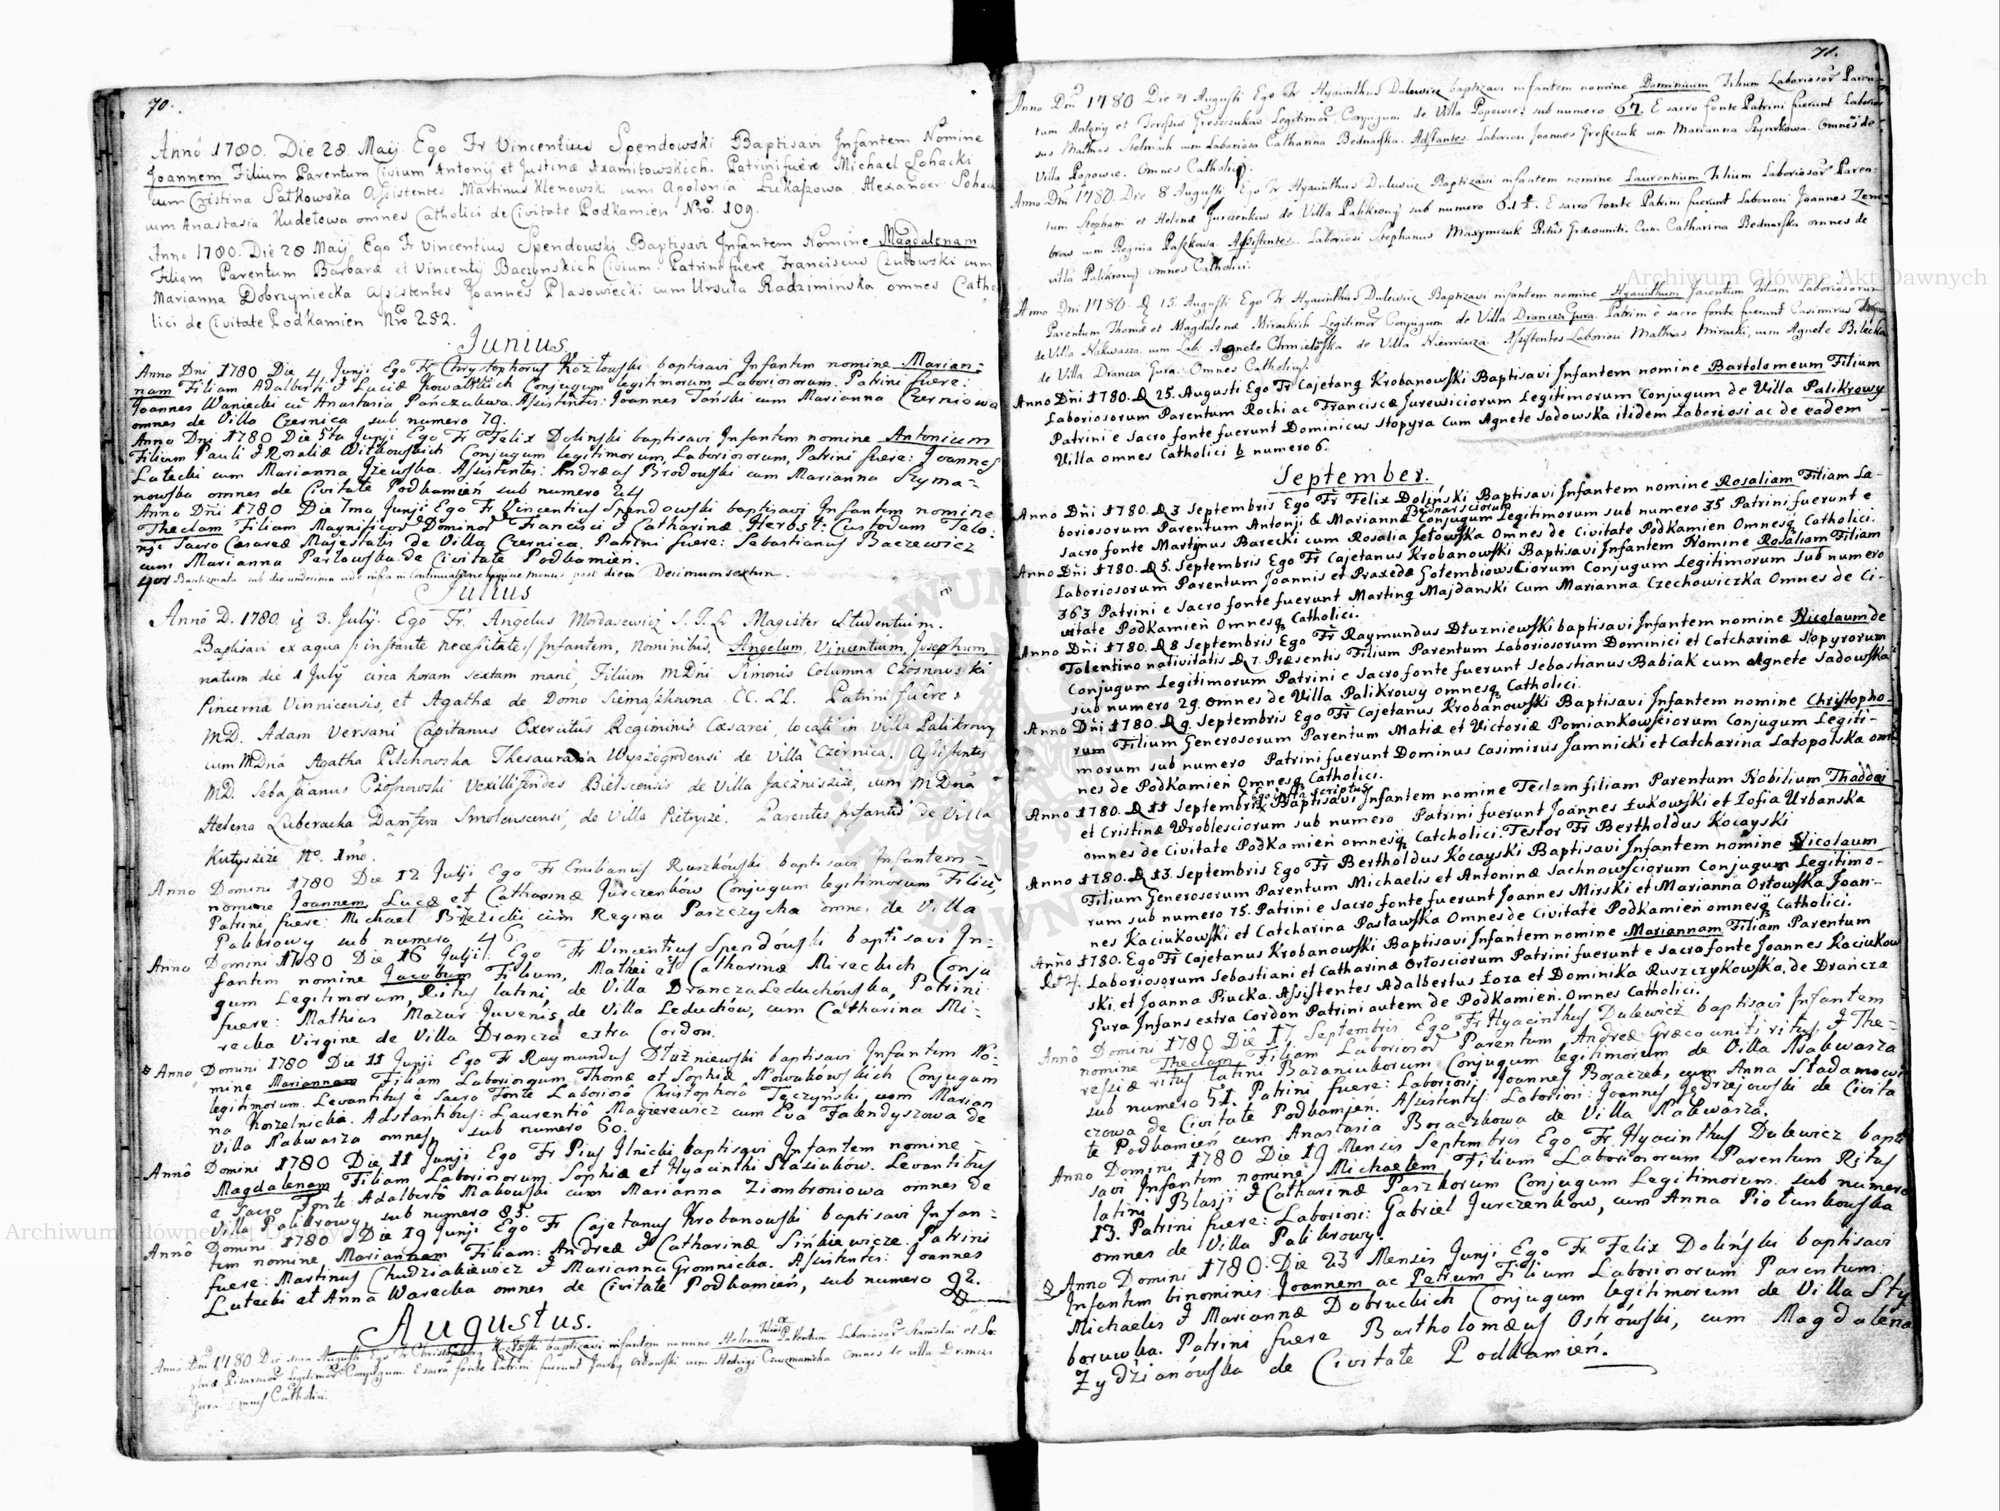 70.
Annô 1780. Die 28. Maij Ego Fr Vincentius Spendowski Baptisavi Infantem Nomine
Joannem Filium Parentum Civium Antonij et Justinæ Framitowskich. Patrini fuêre Michael Sohacki
cum Cristina Satkowska Assistentes Martinus Klenowski cum Apolonia Lukaszowa. Alexander
cum Anastasia Kudetowa omnes Catholici de Civitate Podkamien Nro. 109.
Anno 1780. Die 28 Maij Ego Fr Vincentius Spendowski Baptisavi Infantem Nomine Magdalenam
Filiam Parentum Barbaræ et Vincentij Baczynskich Civium. Patrini fuere Franciscus Czutowski cum
Marianna Dobrzyniecka Assistentes Joannes Plasowiecki cum Ursula Radzimińska omnes Catho
lici de Civitate Podkamien Nro 252.
Junius
Anno Dni 1780 Die 4 Junji Ego Fr Chrystophorus Kozłowski baptisavi Infantem nomine Marian-
nam Filiam Adalberti & Luciæ Kowalskich Conjugum legitimorum Laboriosorum. Patrini fuere:
Joannes Waniecki cũ Anastasia Pańczukowa. Assistentes: Joannes Tański cum Marianna Czerniowa
omnes de Villa Czernica sub numero 79.
Anno Dni 1780 Die 5ta Junji Ego Fr Felix Dolinski baptisavi Infantem nomine Antonium
Filium Pauli & Rosaliæ Witkowskich Conjugum legitimorum, Laboriosorum, Patrini fuere: Joannes
Lutecki cum Marianna Jzewska. Assistentes: Andreas Brodowski cum Marianna Szyma-
nowska omnes de Civitate Podkamień sub numero 24
Anno Dñi 1780 Die 7ma Junji Ego Fr Vincentius Spendowski baptisavi Infantem nomine
Theclam Filiam Magnificor Dominor Francisci & Catharinæ Herbst: Custodum Telo-
nji Sacro Cæsareæ Majestatis de Villa Czernica. Patrini fuere: Sebastianus Baczewicz
cum Marianna Perłowska de Civitate Podkamień.
Baptizmata sub die undecima post diem Decimumsextum.
Julius
Annô D. 1780. 3. July. Ego Fr. Angelus Mordasewicz S. T. L. Magister Studentium.
Baptisavi ex aqua /: instante necessitate :/ Infantem, Nominibus, Angelum, Vincentium, Josephum
natum die 1 July circa horam sextam manè, Filium MDñi Simonis Columna Czosnowski
Pincernæ Vinnicensis, et Agathæ de Domo CC. LL. Patrini fuêre:
MD. Adam Versani Capitanus Exercitûs Regiminis Cæsarei, locati in Villa Palikrowy
cum MDna Agatha Pilchowska Thesauraria Wyszogrodensi de Villa Czernica. Assistentes
MD. Sebastianus Vexilliferides Bielscensis de Villa Jaczniszcze, cum MDna
Helena Luberacka Dapifera Smolenscensi, de Villa Pietnycze. Parentes Infantis de Villa
Kutyszcze No. 1mo.
Anno Domini 1780 Die 12 Julji Ego Fr Emilianus Ruszkówski baptisavi Infantem-
nomine Joannem Lucæ et Catharinæ Jurczenkow Conjugum legitimorum Filiũ,
Patrini fuere: Michael Brzezicki cum Regina Paszczycha omnes de Villa
Palikrowy sub numero 46
Anno Domini 1780 Die 16 Julji. Ego Fr Vincentius Spendówski baptisavi In-
fantem nomine Jacobum Filium, Mathei et Catharinæ Mireckich Conju
gum Legitimorum, Ritus latini, de Villa Drancza Leduchówska, Patrini
fuere: Mathias Mazur Juvenis de Villa Leduchów, cum Catharina Mi-
recka Virgine de Villa Drancza extra Cordon.
Anno Domini 1780 Die 11 Junji Ego Fr Raymundus Dłużniewski baptisavi Infantem No-
mine Mariannam Filiam Laboriosorum Thomæ et Sophiæ Nowakówskich Conjugum
legitimorum. Levantibus e Sacro Fonte Laboriosô Christophorô Tęczyński, cum Marian
na Korzelnicka. Adstantibus: Laurentiô Magierewicz cum Eva Falendyszowa de
Villa Nakwasza omnes, sub numero 60.
Annô Domini 1780 Die 11 Junji Ego Fr Pius Ilnicki baptisavi Infantem nomine-
Magdalenam Filiam Laboriosorum Sophiæ et Hyacinthi Stasiukow. Levantibus
e Sacro Fonte Adalbertô Makowski cum Marianna Ziombroniowa omnes de
Villa Palikrowy, sub numero 83.
Annô Domini 1780 Die 19 Junji Ego Fr Cajetanus Krobanowski baptisavi Infan-
tem nomine Mariannam Filiam: Andreæ & Catharinæ Sińkiewicze. Patrini
fuere: Martinus Chudziakiewicz & Marianna Gromnicka. Assistentes: Joannes
Lutecki et Anna Warecka omnes de Civitate Podkamień, sub numero 92.
Augustus.
Anno Dni 1780 Die Augusti Ego Fr Christophorus Kozłoski baptizavi infantem nomine Helenam Filiam Parentum Laboriosor Stanislai et So
phiæ Pisarzuor Legitimor Conjugum E sacro fonte Patrini fuerunt Orłowski cum Hedvigi Czuczmanicha Omnes de villa Drancza
Gura Omnes Catholici.
71.
Anno Dni 1780 Die 4 Augusti Ego Fr Hyacinthus Dulewicz baptizavi infantem nomine Dominicum Filium Laboriosor Paren-
tum Antonij et Teressiæ Greszczukow Legitimor Conjugum de Villa Popowce sub numero 67. E sacro fonte Patrini fuerunt Laborio-
sus Mathias Stelmach cum Laboriosa Catharina Bednarska. Adstantes. Laboriosi Joannes Gresczuk cum Marianna Szynkowa. Omnes de
Villa Popowce. Omnes Catholici.
Anno Dni 1780. Die 8 Augusti Ego Fr Hyacinthus Dulewicz Baptizavi infantem nomine Laurentium Filium Laboriosor Paren-
tum Stephani et Helenæ Jurczenkow de Villa Palikrowy sub numero 61. E sacro fonte Patrini fuerunt Laboriosi Joannes Zem-
brow cum Regina Paszkowa. Assistentes. Laboriosi Stephanus Maxymczuk Ritûs Græcouniti. Cum Catharina Bednarska omnes de
villa Palikrowy omnes Catholici.
Anno Dni 1780. D 15 Augusti Ego Fr Hyacinthus Dulewicz Baptizavi infantem nomine Hyacinthum Jacentum Filium Laboriosorum
Parentum Thomæ et Magdalenæ Mirackich Legitimor Conjugum de Villa Drancza Gura. Patrini e sacro fonte fuerunt Casimirus
de Villa Nakwasza cum Lab. Agnete Chmielofska de Villa Niemiacz. Assistentes Laboriosi Mathias Miracki, cum Agnete Bilecka
de Villa Drancza Gura. Omnes Catholici.
Anno Dñi 1780. D 25. Augusti Ego Fr Cajetang Krobanowski Baptisavi Infantem nomine Bartolomeum Filium
Laboriosorum Parentum Rochi ac Franciscæ Jurewiciorum Legitimorum Conjugum de Villa Palikrowy
Patrini e sacro fonte fuerunt Dominicus Stopyra Cum Agnete Sadowska itidem Laboriosi ac de eadem
Villa omnes Catholici b numero 6.
September.
Anno Dñi 1780. D 3 Septembris Ego Fr Felix Doliński Baptisavi Infantem nomine Rosaliam Filiam La-
boriosorum Parentum Antonji & Mariannæ Bednarsciorum Conjugum Legitimorum sub numero 35 Patrini fuerunt e
sacro fonte Martynus Barecki cum Rosalia Jełowska Omnes de Civitate Podkamien Omnesq Catholici.
Anno Dñi 1780. D 5. Septembris Ego Fr Cajetanus Krobanowski Baptisavi Infantem Nomine Rosaliam Filiam
Laboriosorum Parentum Joannis et Praxedæ Gotembiowsciorum Conjugum Legitimorum sub numero
363 Patrini e sacro fonte fuerunt Marting Majdanski Cum Marianna Czechowiczka Omnes de Ci-
vitate Podkamień Omnesq Catholici.
Anno Dñi 1780. D 8 Septembris Ego Fr Raymundus Dłuzniewski baptisavi Infantem nomine Nicolaum de
Tolentino nativitatis D 7. Præsentis Filium Parentum Laboriosorum Dominici et Catcharinæ Stopyrorum
Conjugum Legitimorum Patrini e sacro fonte fuerunt Sebastianus Babiak cum Agnete Sadowska
sub numero 29. omnes de Villa Palikrowy omnesq Catholici.
Anno Dñi 1780. D 9. Septembris Ego Fr Cajetanus Krobanowski Baptisavi Infantem nomine Christopho-
rum Filium Generosorum Parentum Matiæ et Victoriæ Pomiankowsciorum Conjugum Legiti-
morum sub numero Patrini fuerunt Dominus Casimirus Jamnicki et Catcharina Latopolska om-
nes de Podkamień Omnesq Catholici.
Anno 1780. D 11 Septembris Ego infra scriptus Baptisavi Infantem nomine Teclam filiam Parentum Nobilium Thaddei
et Cristinæ Wroblesciorum sub numero Patrini fuerunt Joannes Łukowski et Zofia Urbanska
omnes de Civitate Podkamień omnesq Catcholici. Testor Fr Bertholdus Kocayski
Anno 1780. D 13. Septembris Ego Fr Bertholdus Kocayski Baptisavi Infantem nomine Nicolaum
Filium Generosorum Parentum Michaelis et Antoninæ Sachnowsciorum Conjugum Legitimo-
rum sub numero 75. Patrini e sacro fonte fuerunt Joannes Mirski et Marianna Orłowska Joan-
nes Kaciukowski et Catcharina Pasławska Omnes de Civitate Podkamień omnesq Catholici.
Anno 1780. Ego Fr Cajetanus Krobanowski Baptisavi Infantem nomine Mariannam Filiam Parentum
Laboriosorum Sebastiani et Catharinæ Orłosciorum Patrini fuerunt e sacro fonte Joannes Kaciukow
ski et Joanna Piucka. Assistentes Adalbertus Łoza et Dominika Ruszczykowska, de Drancza
Gura Infans extra Cordon Patrini autem de Podkamień. Omnes Catholici.
Annô Domini 1780 Die 17 Septembris Ego Fr Hyacinthus Dulewicz baptisavi Infantem
nomine Theclam Filiam Laboriosor Parentum Andreæ Græco uniti ritus & The-
ressiæ ritus latini Bazaniukorum Conjugum legitimorum de Villa Nakwasza
sub numero 51. Patrini fuere: Laboriosi Joannes Boraczek, cum Anna Stadamowi
czowa de Civitate Podkamień. Assistentes: Laboriosi: Joannes Jędrzejowski de Civita
te Podkamień cum Anastasia Boraczkowa de Villa Nakwasza.
Anno Domini 1780 Die 19 Mensis Septembris Ego Fr. Hyacinthus Dulewicz bapti
savi Infantem nomine Michaelem Filium Laboriosorum Parentum Ritus
latini Blasji & Catharinæ Paszkorum Conjugum Legitimorum sub numero
13. Patrini fuere: Laboriosi: Gabriel Jurczenkow, cum Anna Piotunkowska
omnes de Villa Palikrowy.
Anno Domini 1780. Die 23 Mensis Junji Ego Fr Felix Doliński baptisavi
Infantem binominis Joannem ac Petrum Filium Laboriosorum Parentum
Michaelis & Mariannæ Dobruckich Conjugum legitimorum de Villa Sty
boruwka. Patrini fuere Bartholomæus Ostrówski, cum Magdalena
Zydzianówska de Civitate Podkamień.
Archiwum Główne Akt Dawnych
Archiwum Główne Akt Dawnych